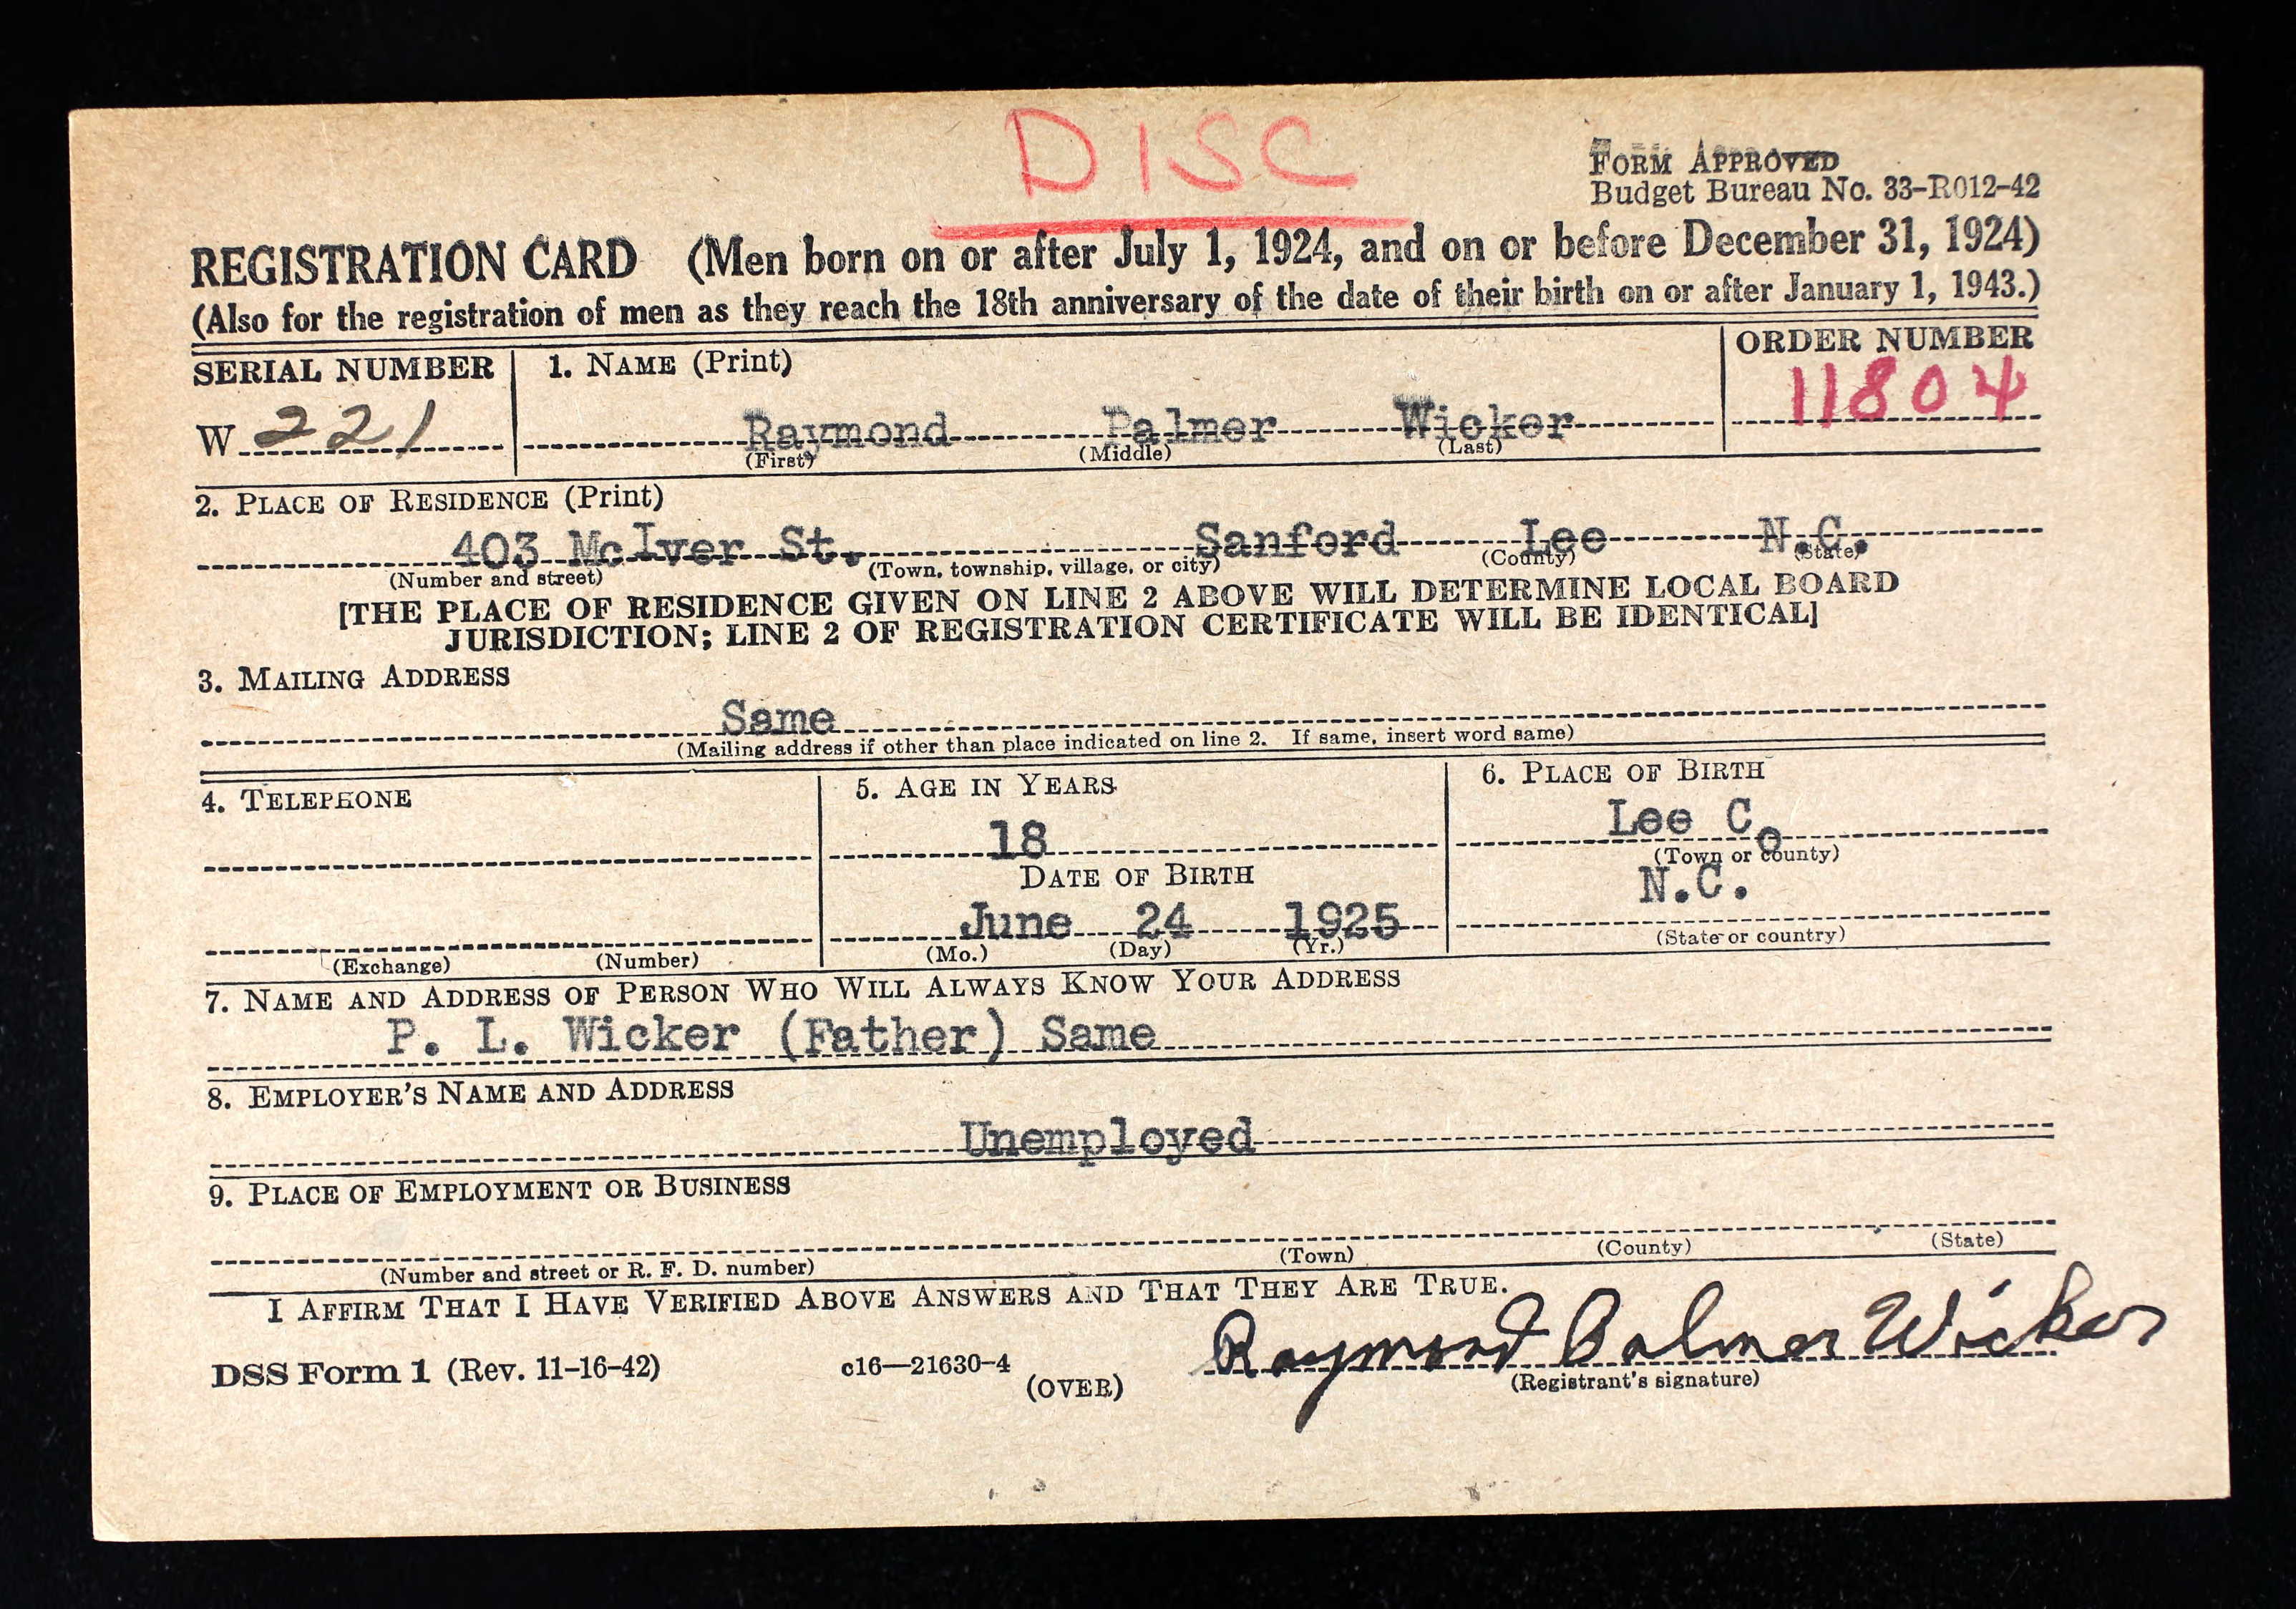 DISC
FORM APPROVED
Budget Bureau No. 33-R012-42
REGISTRATION CARD (Men born on or after July 1, 1924, and on or before December 31, 1924)
(Also for the registration of men as they reach the 18th anniversary of the date of their birth on or after January 1, 1943.)
SERIAL NUMBER 1. NAME (Print) ORDER NUMBER
W 221 Raymond Palmer Wicker 11804
(First) (Middle) (Last)
2. PLACE OF RESIDENCE (Print)
403 McIver St. Sanford Lee N.C.
(Number and street) (Town, township, village, or city) (County) (State)
[THE PLACE OF RESIDENCE GIVEN ON LINE 2 ABOVE WILL DETERMINE LOCAL BOARD
JURISDICTION; LINE 2 OF REGISTRATION CERTIFICATE WILL BE IDENTICAL]
3. MAILING ADDRESS
Same
(Mailing address if other than place indicated on line 2. If same, insert word same)
4. TELEPHONE 5. AGE IN YEARS 6. PLACE OF BIRTH
18 Lee Co
(Town or county)
DATE OF BIRTH N.C.
June 24 1925
(Exchange) (Number) (Mo.) (Day) (Yr.) (State or country)
7. NAME AND ADDRESS OF PERSON WHO WILL ALWAYS KNOW YOUR ADDRESS
P. L. Wicker (Father) Same
8. EMPLOYER'S NAME AND ADDRESS
Unemployed
9. PLACE OF EMPLOYMENT OR BUSINESS
(Number and street or R. F. D. number) (Town) (County) (State)
I AFFIRM THAT I HAVE VERIFIED ABOVE ANSWERS AND THAT THEY ARE TRUE.
Raymond Palmer Wicker
DSS Form 1 (Rev. 11-16-42) c16—21630-4 (Registrant's signature)
(OVER)